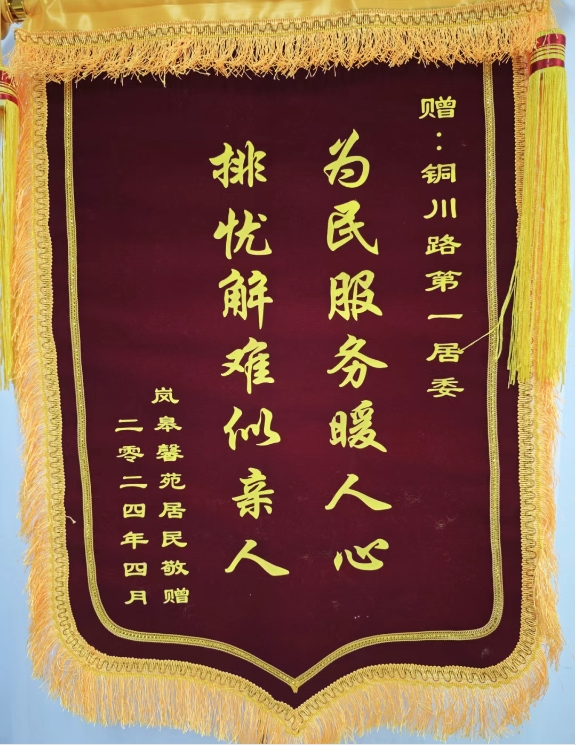 赠：铜川路第一居委
为民服务暖人心
排忧解难似亲人
岚皋馨苑居民敬赠
二零二四年四月